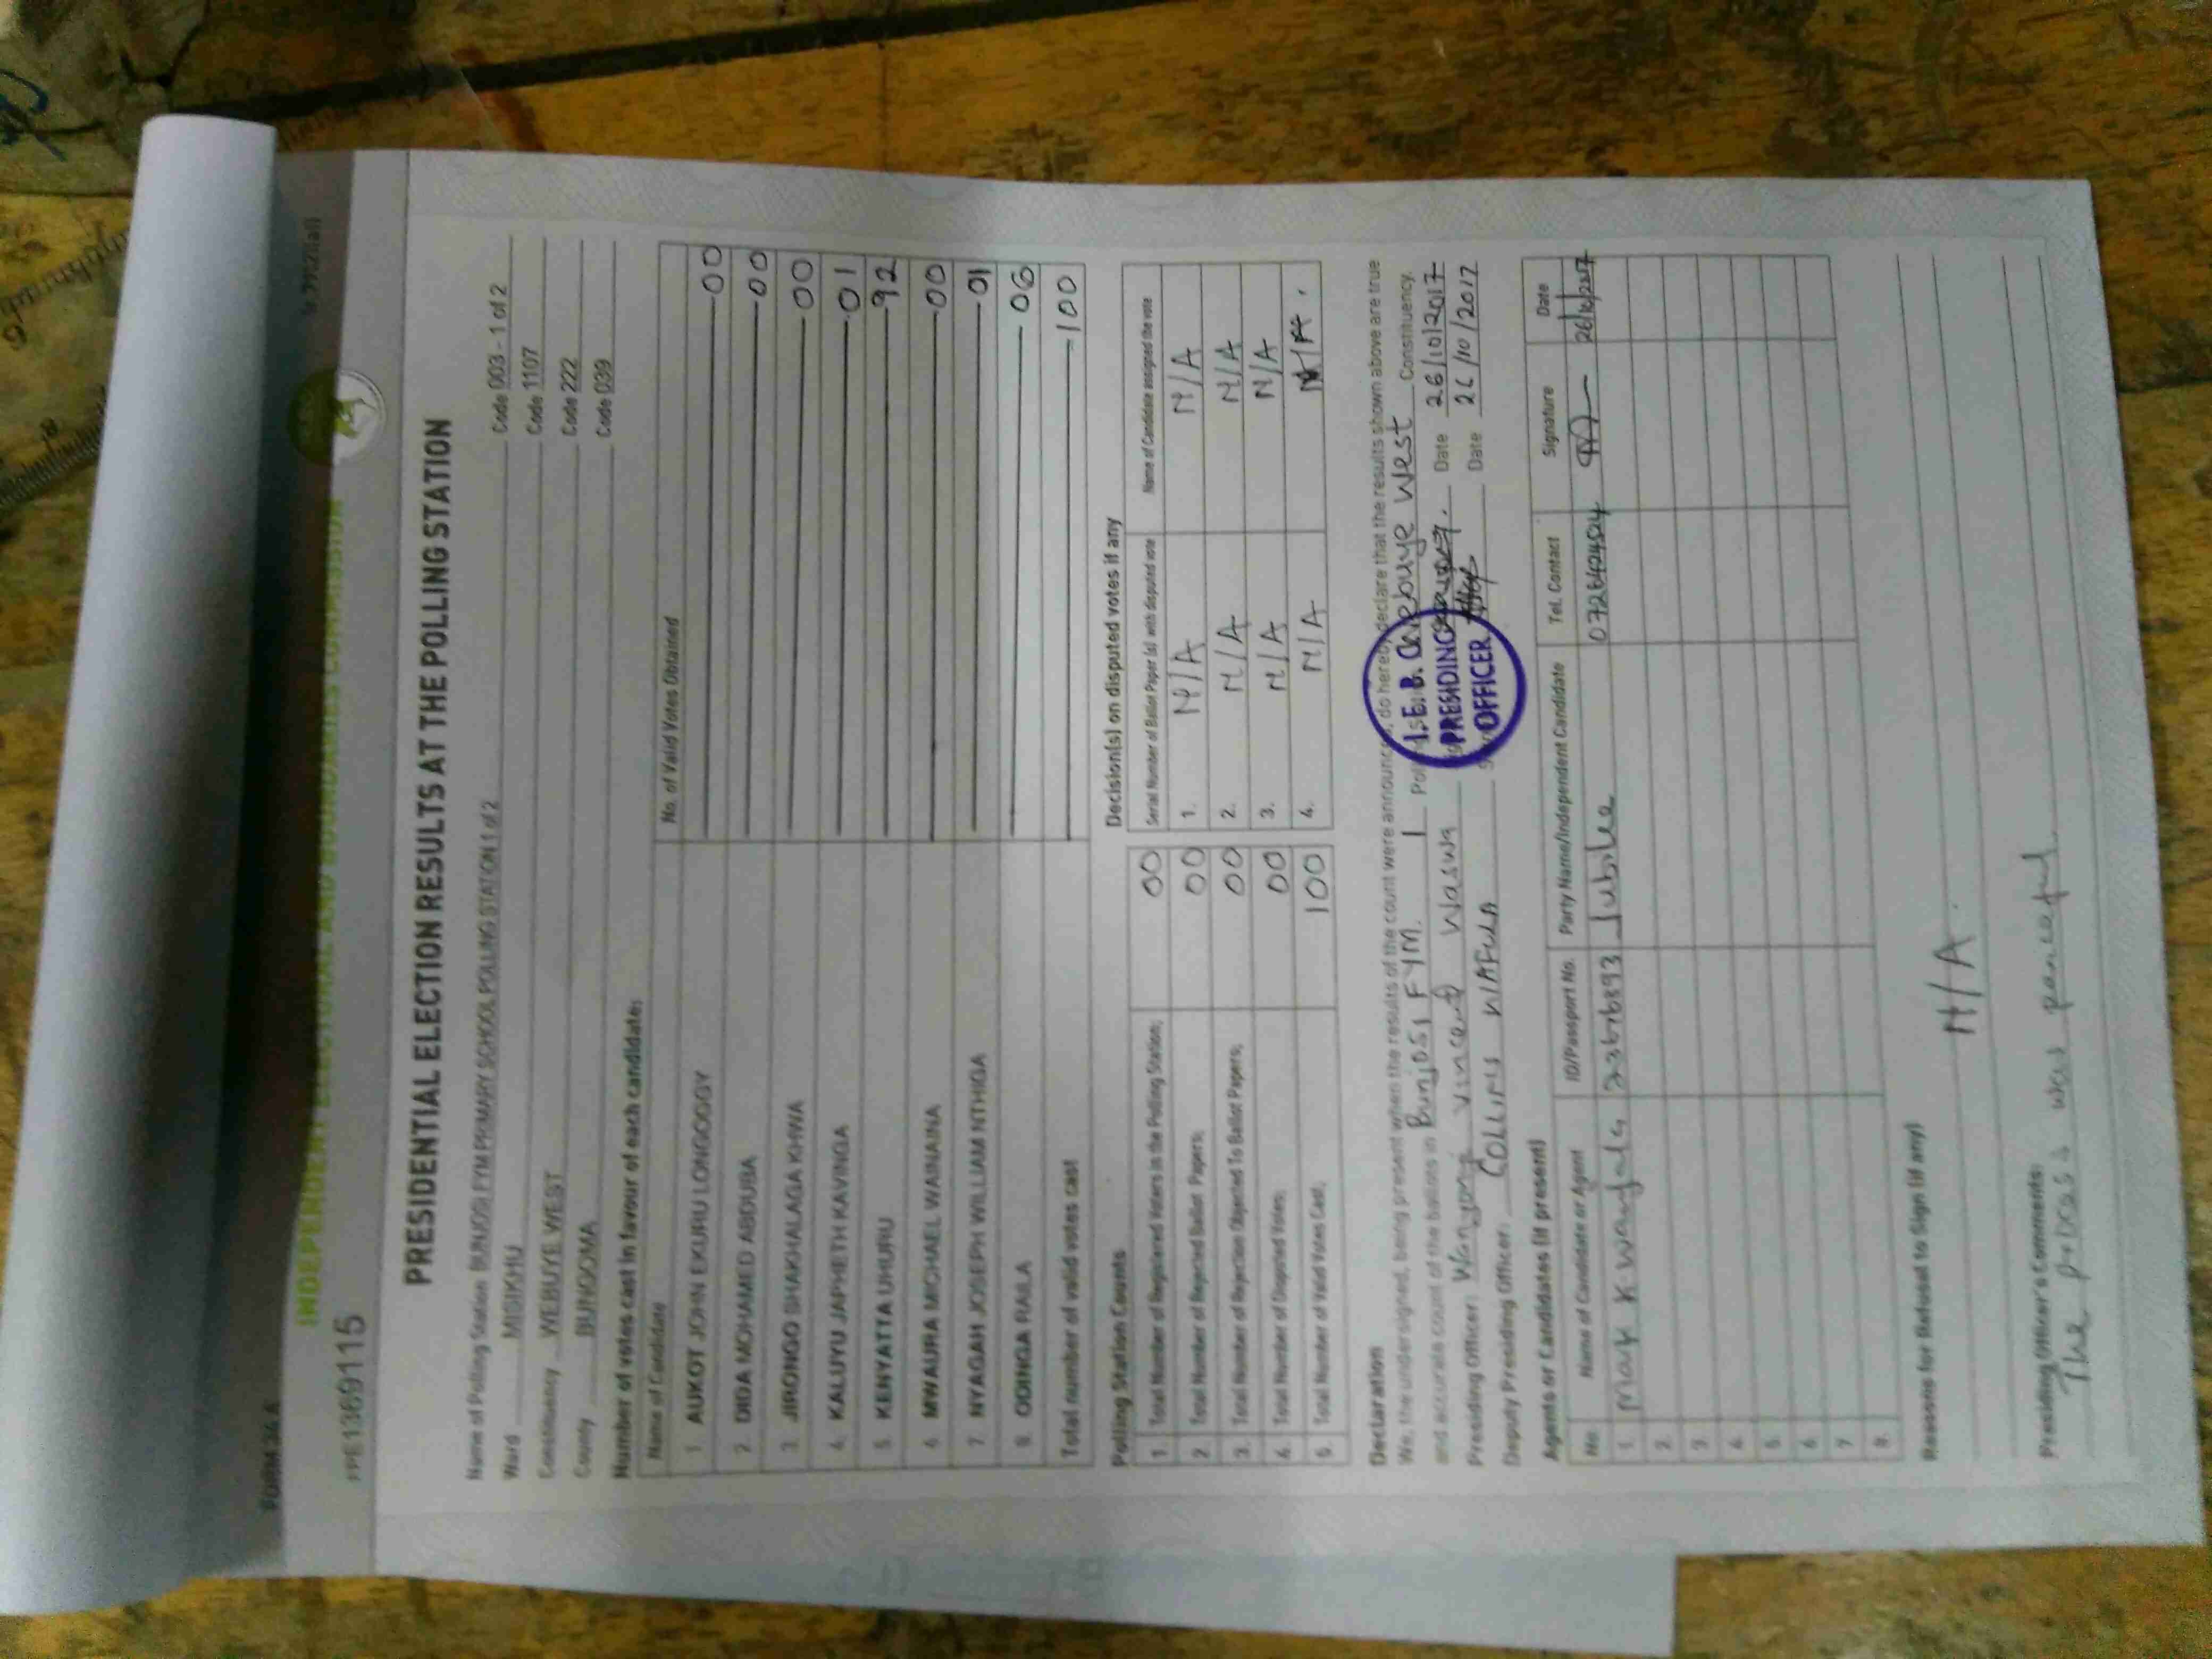 FORM 34 A
r. 79(2)(a)
INDEPENDENT ELECTORAL AND BOUNDARIES COMMISSION
PRE1369115
PRESIDENTIAL ELECTION RESULTS AT THE POLLING STATION
Name of Polling Station BUNJOSI FYM PRIMARY SCHOOL POLLING STATION 1 of 2 Code 003 - 1 of 2
Ward MISIKHU Code 1107
Constituency WEBUYE WEST Code 222
County BUNGOMA Code 039
Number of votes cast in favour of each candidate:
Name of Candidate No. of Valid Votes Obtained
1. AUKOT JOHN EKURU LONGOGGY 00
2. DIDA MOHAMED ABDUBA 00
3. JIRONGO SHAKHALAGA KHWA 00
4. KALUYU JAPHETH KAVINGA 01
5. KENYATTA UHURU 92
6. MWAURA MICHAEL WAINAINA 00
7. NYAGAH JOSEPH WILLIAM NTHIGA 01
8. ODINGA RAILA 06
Total number of valid votes cast 100
Polling Station Counts
1. Total Number of Registered Voters in the Polling Station; 00
2. Total Number of Rejected Ballot Papers; 00
3. Total Number of Rejection Objected To Ballot Papers; 00
4. Total Number of Disputed Votes; 00
5. Total Number of Valid Votes Cast; 100
Decision(s) on disputed votes if any
Serial Number of Ballot Paper (s) with disputed vote Name of Candidate assigned the vote
1. N/A N/A
2. N/A N/A
3. N/A N/A
4. N/A N/A.
Declaration
We, the undersigned, being present when the results of the count were announced, do hereby declare that the results shown above are true
and accurate count of the ballots in Bunjosi FYM. 1 Webuye West Constituency.
Presiding Officer: Wanyonyi Vincent Waswa Date 26/10/2017
Deputy Presiding Officer: COLLINS WAFULA Date 26/10/2017
I.E.B.C
PRESIDING
OFFICER
Agents or Candidates (if present)
No. Name of Candidate or Agent ID/Passport No. Party Name/Independent Candidate Tel. Contact Signature Date
1. mark K wafula 22676893 Jubilee 0726424524 26/10/2017
2.
3.
4.
5.
6.
7.
8.
Reasons for Refused to Sign (if any)
N/A.
Presiding Officer's Comments:
The process was panceful.